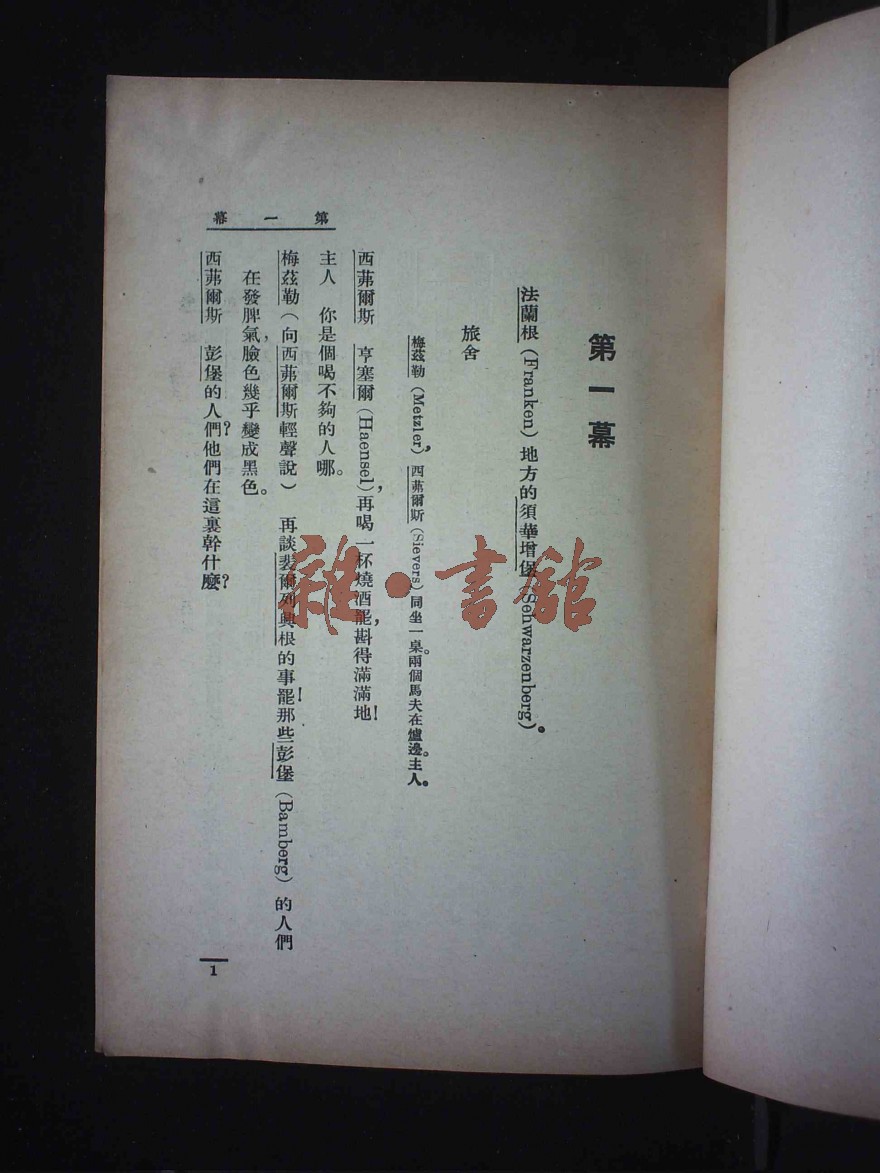 第一幕
第一幕
法蘭根(Franken)地方的須華增堡(Sehwarzenberg)。
旅舍
梅茲勒(Metzler),西茀爾斯(Sievers)同坐一桌。兩個馬夫在爐邊。主人。
西茀爾斯　亨塞爾(Haensel),再喝一杯燒酒罷,斟得滿滿地!
主人　你是個喝不夠的人哪。
梅茲勒(向西茀爾斯輕聲說)　再談裴爾列興根的事罷!那些彭堡(Bamberg)的人們
在發脾氣,臉色幾乎變成黑色。
西茀爾斯　彭堡的人們?他們在這裏幹什麼?
1
雜·書館